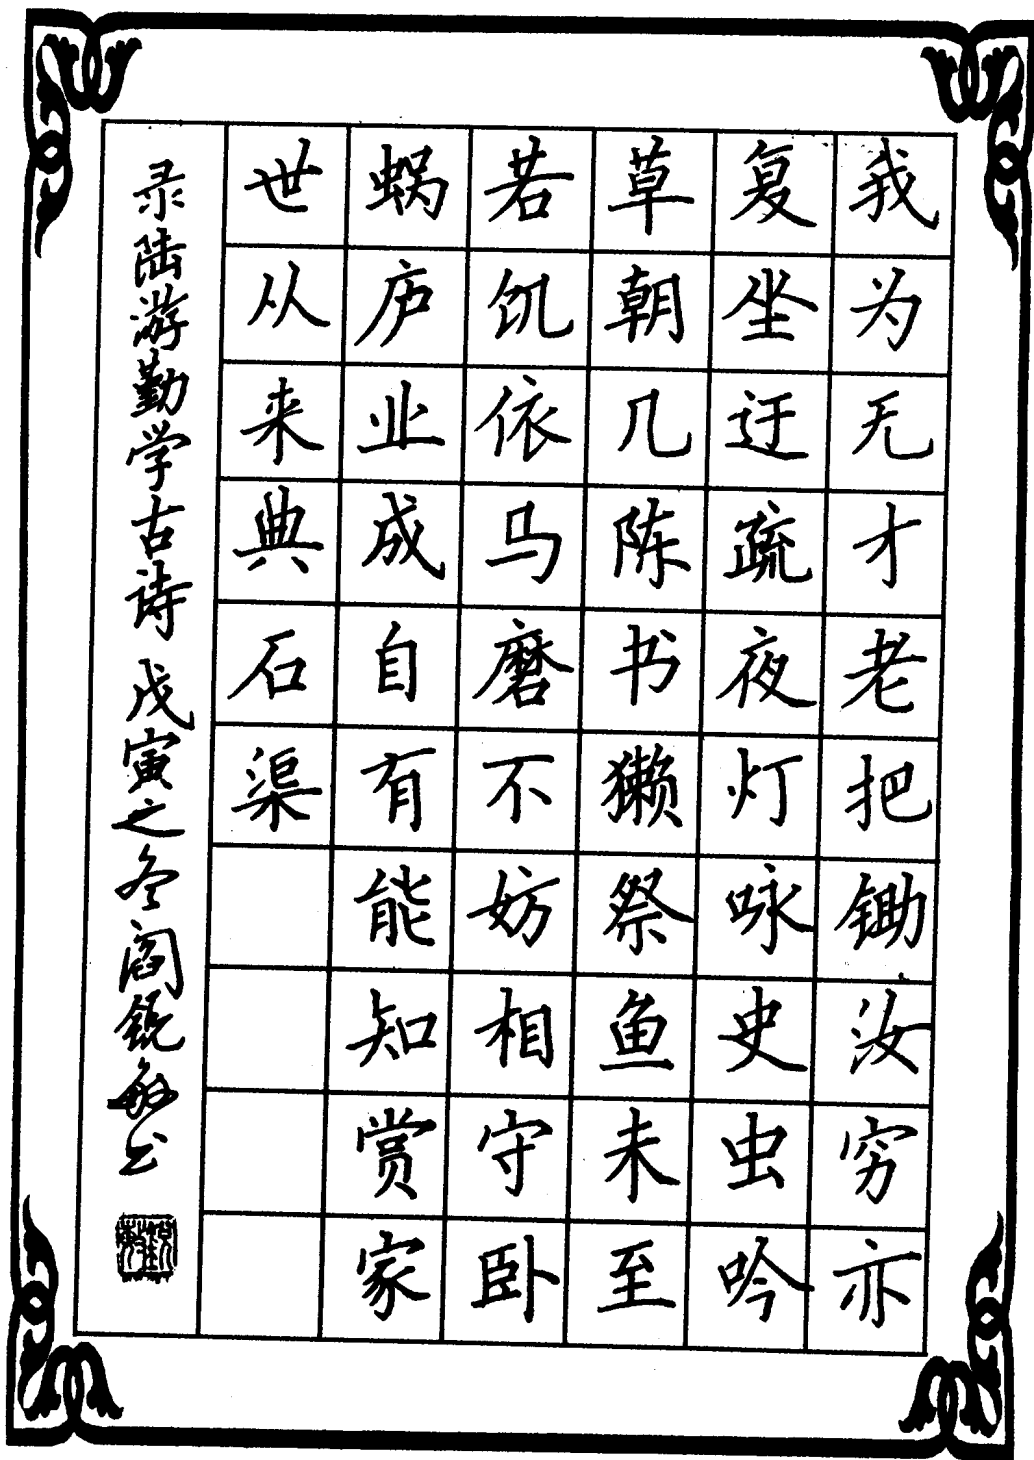 我为无才老把锄汝穷亦
复坐迂疏夜灯咏史虫吟
草朝几陈书獭祭鱼未至
若饥依马磨不妨相守卧
蜗庐业成自有能知赏家
世从来典石渠
录陆游勤学古诗 戊寅之冬阎锐敏书
锐敏